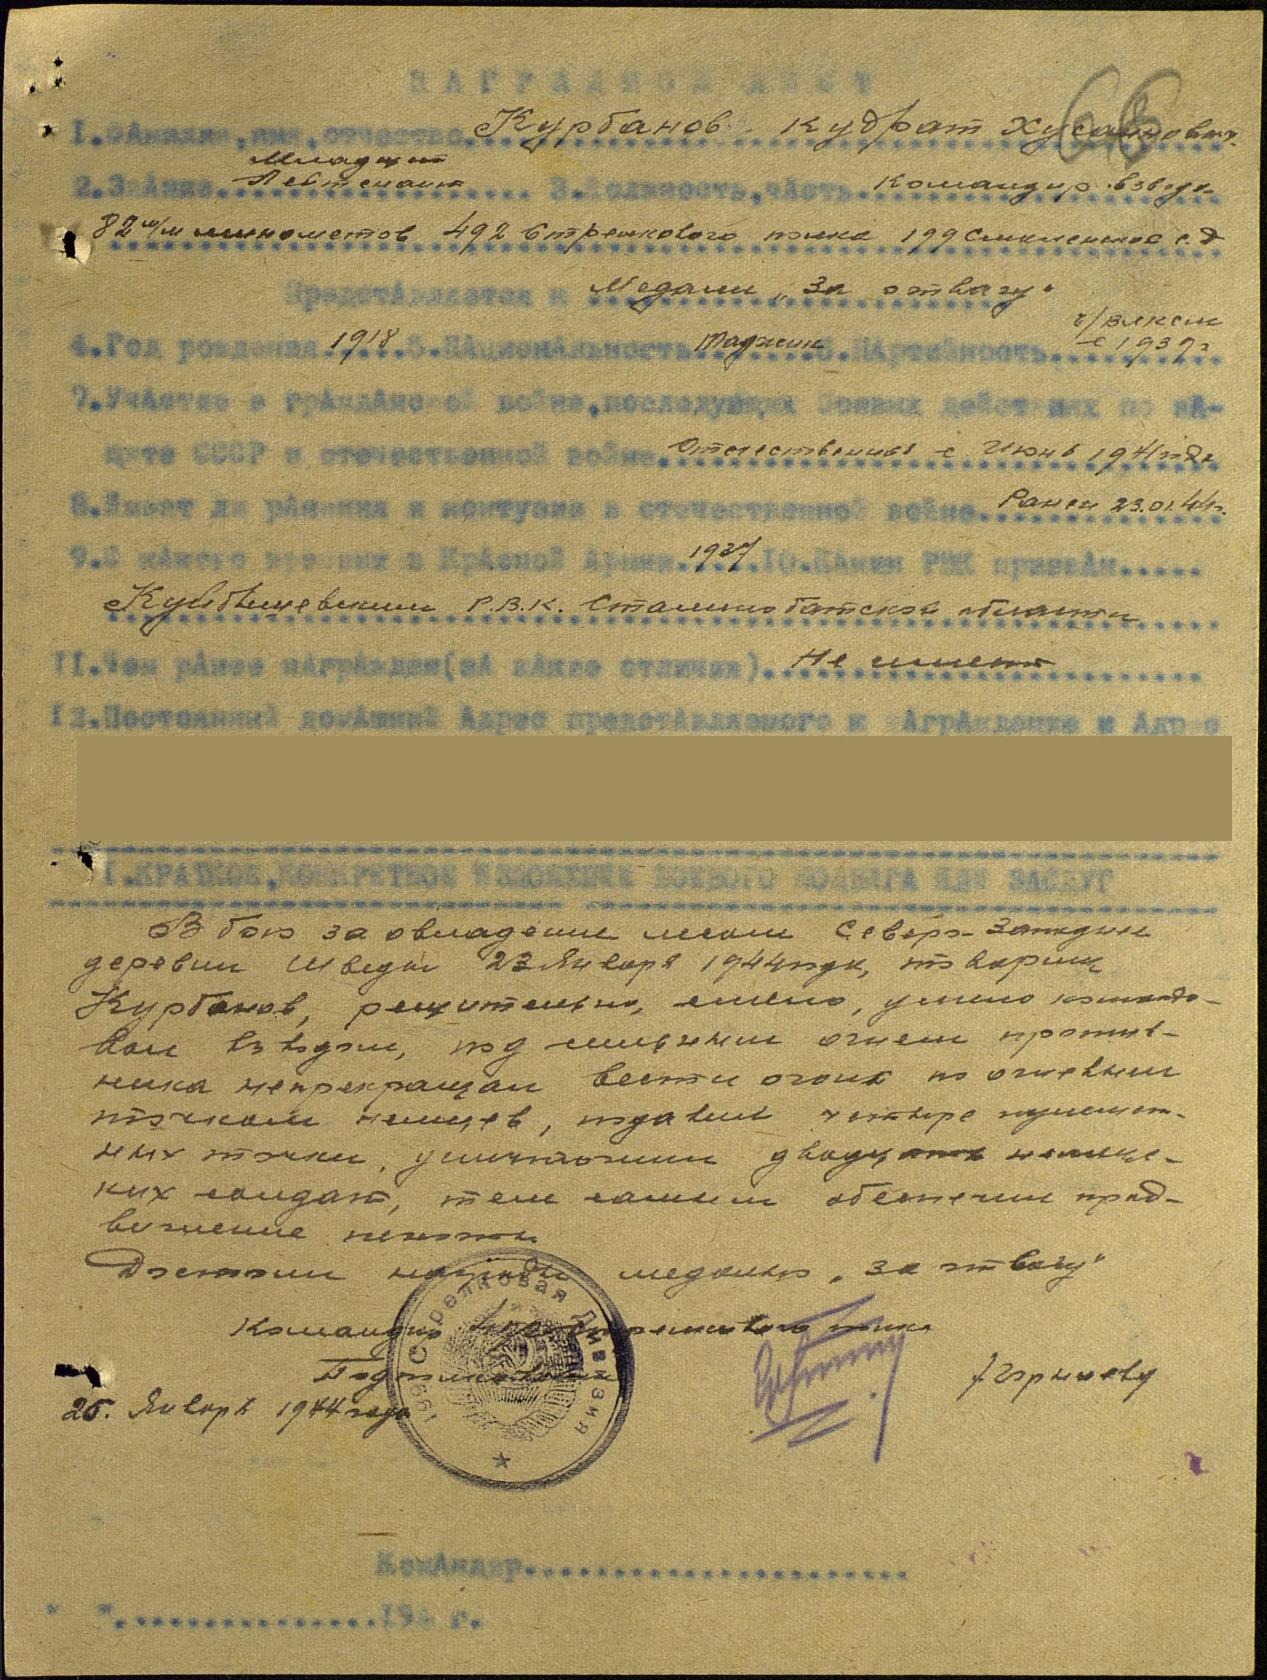 НАГРАДНОЙ ЛИСТ
66
1.Фамилия,имя,отчество Курбанов Кудрат Хусаинович
Младший
2.Звание Лейтенант 3.Должность,часть командир взвода
82 м/м минометов 492 Стрелкового полка 199 Смоленской с.д
Представляется к Медали „За отвагу"
ч/влксм
4.Год рождения 1918 5.Национальность таджик 6.Партийность с 1939г
7.Участие в гражданской войне,последующих боевых действиях по за-
щите СССР и отечественной войне Отечественной с Июня 1941 года
8.Имеет ли ранения и контузии в отечественной войне Ранен 23.01.44г.
9.С какого времени в Красной Армии 1937 10.Каким РВК призван
Куйбышевским Р.В.К. Сталинобатской области
11.Чем ранее награжден(за какие отличия) Не имеет
12.Постоянный домашний адрес представляемого к награждению и адрес
I.КРАТКОЕ,КОНКРЕТНОЕ ИЗЛОЖЕНИЕ БОЕВОГО ПОДВИГА ИЛИ ЗАСЛУГ
В бою за овладение лесом Северо-Западнее
деревни Шведы 23 Января 1944 года, товарищ
Курбанов, решительно, смело, умело командо-
вал взводом, под сильным огнем против-
ника непрекращал вести огонь по огневым
точкам немцев, подавил четыре пулемет-
ных точки, уничтожил двадцать немец-
ких солдат, тем самым обеспечил прод-
вижение пехоты
Достоин награды медалью „за отвагу"
Командир 492 Стрелкового полка
Подполковник
25. Января 1944 года
199 Стрелковая Дивизия
Командир
" " 194 г.